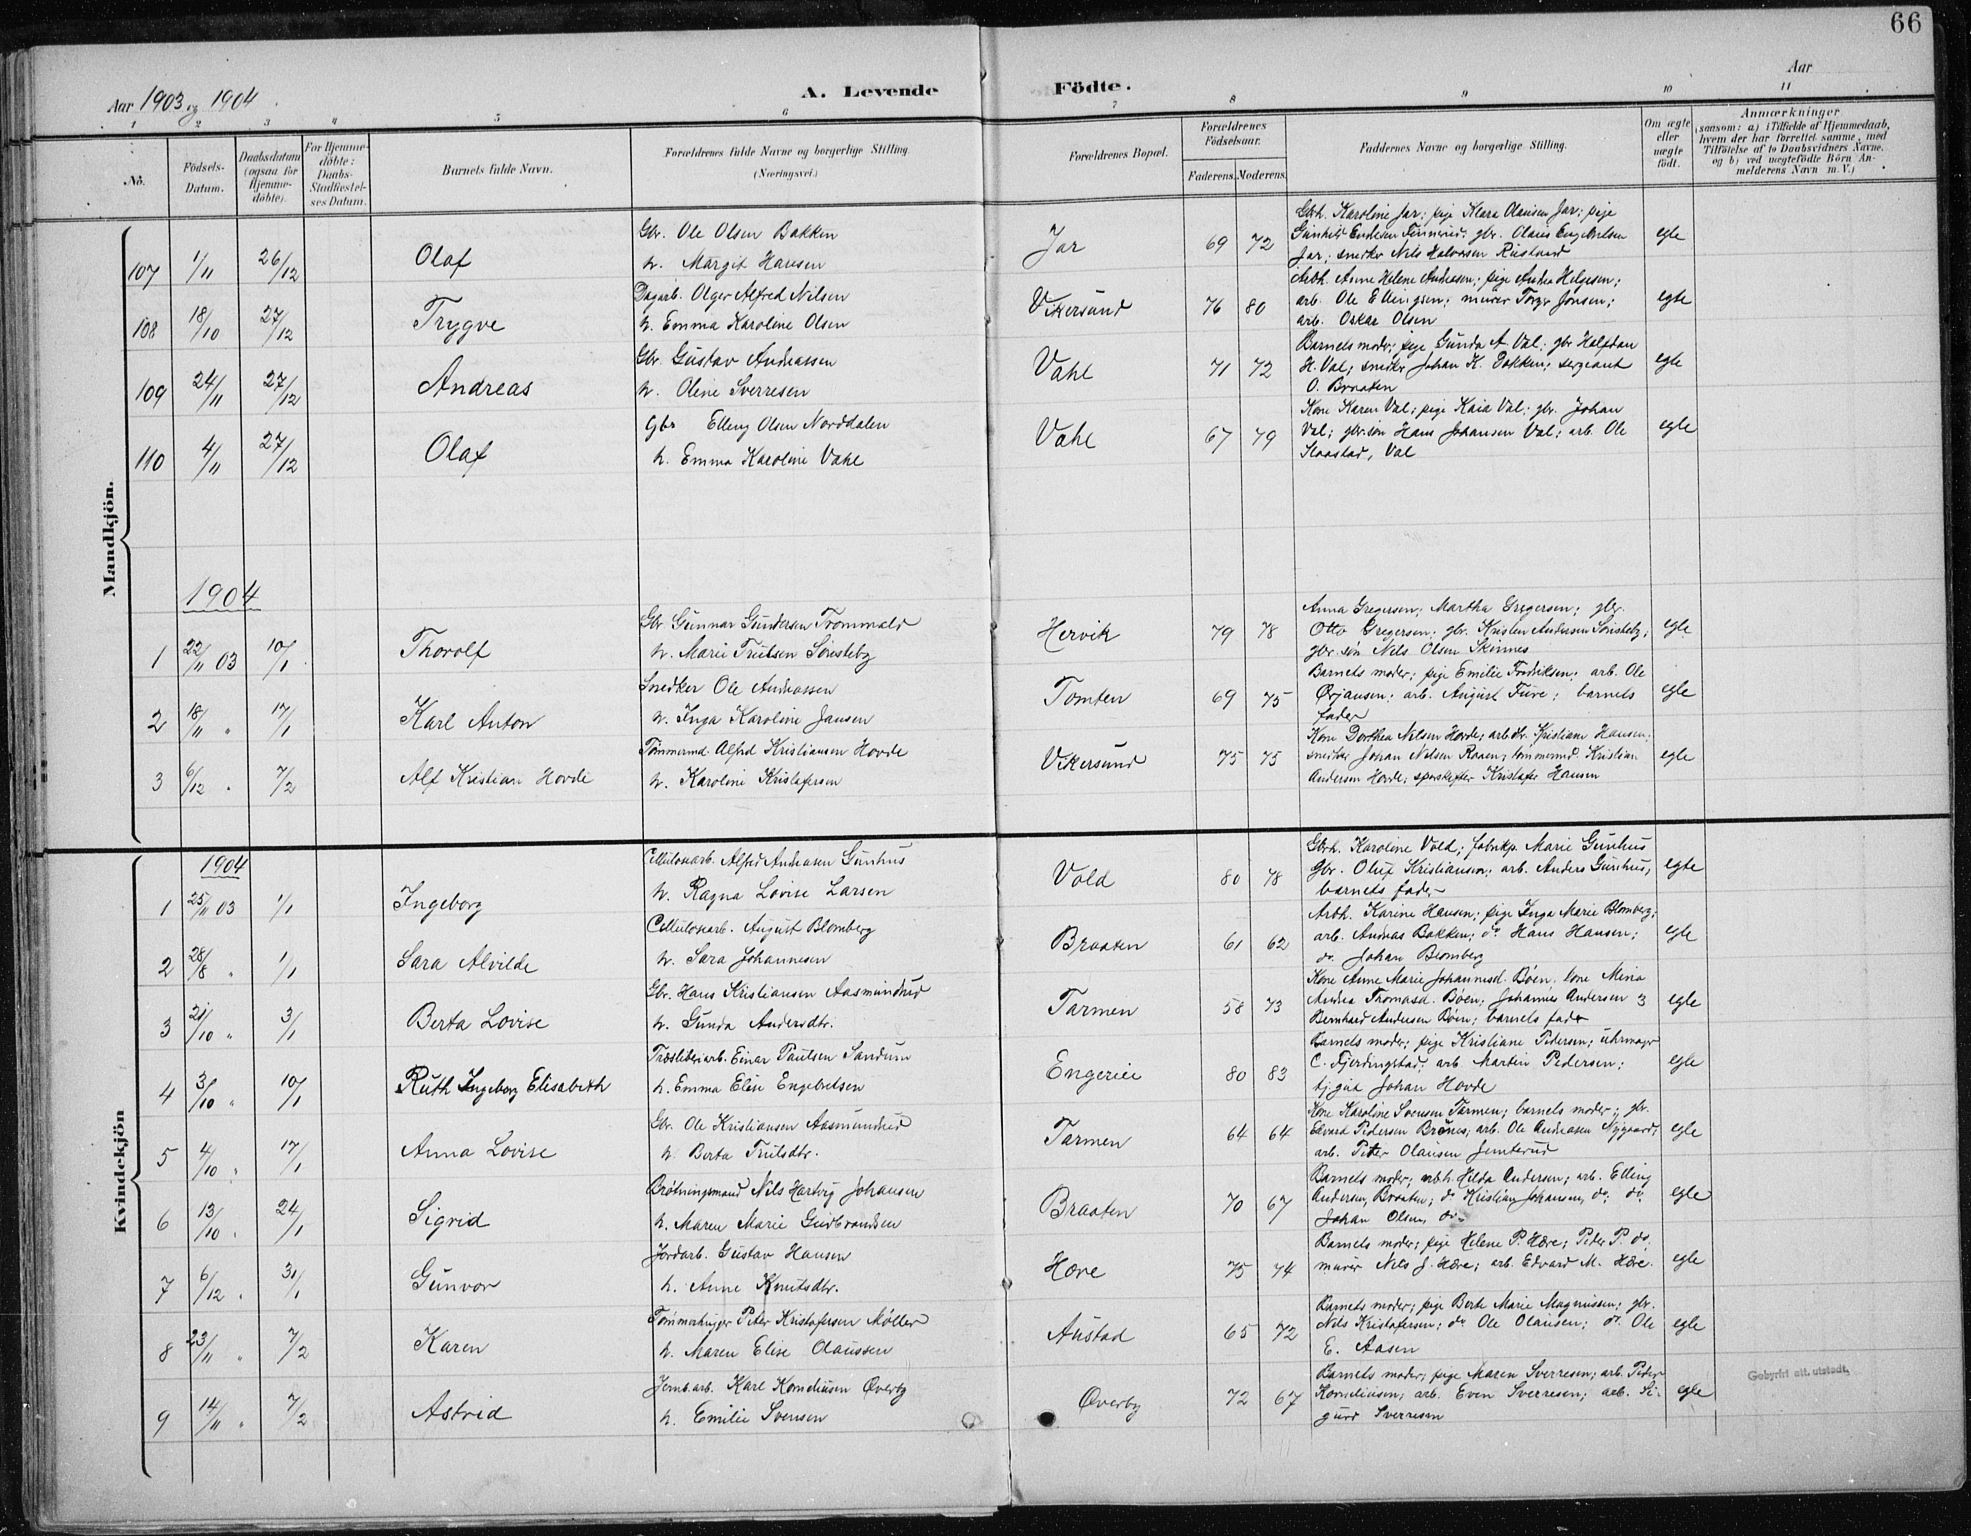 66
Aar 1903 og 1904
A. Levende Födte.
Aar
1 2 3 4 5 6 7 8 9 10 11
No.
Födsels-Datum.
Daabsdatum (ogsaa for Hjemme-döbte).
For Hjemme-döbte: Daabs-Stadfæstel-ses Datum.
Barnets fulde Navn.
Forældrenes fulde Navne og borgerlige Stilling (Næringsvei.)
Forældrenes Bopæl.
Forældrenes Födselsaar.
Faderens. Moderens.
Faddernes Navne og borgerlige Stilling.
Om ægte eller uægte födt.
Anmærkninger
(saasom: a) i Tilfælde af Hjemmedaab,
hvem der har forrettet samme, med
Tilföielse af to Daabsvidners Navne,
og b) ved uægtefödte Börn An-
melderens Navn m. V.)
Mandkjön.
107 1/11 26/12 Olaf
Gbr. Ole Olsen Bakken
h. Margit Hansen
Jar 69 72
Gbrh. Karoline Jar; pige Klara Olausen Jar; pige
Gunhild Endresen Finnerud; gbr. Olaus Engebretsen
Jar; snedker Nils Halvorsen Rustand
egte
108 18/10 27/12 Trygve
Dagarb. Olger Alfred Nilsen
h. Emma Karoline Olsen
Vikersund 76 80
Arbh. Anne Helene Andreasen; pige Andrea Helgesen;
arb. Ole Ellingsen; murer Torger Jonsen;
arb. Oskar Olsen
egte
109 24/11 27/12 Andreas
Gbr. Gustav Andreassen
h. Oline Sverresen
Vahl 71 72
Barnets moder; pige Gunda A. Val; gbr Halfdan
H. Val; snedker Johan K. Bakken; sergeant
O. Braaten
egte
110 4/11 27/12 Olaf
Gbr Elling Olsen Norddalen
h. Emma Karoline Vahl
Vahl 67 79
Kone Karen Val; pige Kaia Val; gbr. Johan
Val; gbr.søn Hans Johansen Val; arb. Ole
Slaastad, Val
egte
1904
1 22/11 03 10/1 Thorolf
Gbr Gunnar Gundersen Trommald
h. Marie Trulsen Sønsteby
Hervik 79 78
Anna Gregersen; Martha Gregersen; gbr.
Otto Gregersen; gbr. Kristen Andersen Sønsteby;
gbr. søn Nils Olsen Skinnes
egte
2 18/11 " 17/1 Karl Anton
Snedker Ole Andreassen
h. Inga Karoline Jansen
Tomten 69 75
Barnets moder; pige Emilie Fredriksen; arb. Ole
Ørjansen; arb. August Fure; barnets
fader
egte
3 6/12 " 7/2 Alf Kristian Hovde
Tømmermd. Alfred Kristiansen Hovde
h. Karoline Kristofersen
Vikersund 75 75
Kone Dorthea Nilsen Hovde; arbdr. Kristiane Hansen;
snedker Johan Nilsen Raaen; tømmermd. Kristian
Andersen Hovde; sporskifter Kristofer Hansen
egte
Kvindekjön
1904
1 25/11 03 1/1 Ingeborg
Cellulosearb. Alfred Andreasen Gunhus
h. Ragna Lovise Larsen
Vold 80 78
Gbrh. Karoline Vold; fabrikp. Marie Gunhus
Gbr. Oluf Kristiansen; arb. Anders Gunhus;
barnets fader
egte
2 28/8 " 1/1 Sara Alvilde
Cellulosearb. August Blomberg
h. Sara Johannesen
Braaten 61 62
Arbh. Karine Hansen; pige Inga Marie Blomberg;
arb. Andreas Bakken; do Hans Hansen;
do. Johan Blomberg
egte
3 21/10 " 3/1 Berta Lovise
Gbr. Hans Kristiansen Aasmundrud
h. Gunda Andersdtr.
Tarmen 58 73
Kone Anne Marie Johannesd. Bøen, kone Mina
Andrea Thomasd. Bøen; Johannes Andersen
Bernhard Andersen Bøen; barnets fader
egte
4 3/10 " 10/1 Ruth Ingeborg Elisabeth
Træsliberiarb. Einar Paulsen Sandum
h. Emma Elise Engebretsen
Engerie 80 83
Barnets moder; pige Kristiane Pedersen; uhrmager
C. Fjerdingstad; arb Martin Pedersen;
tj.gut Johan Hovde
egte
5 4/10 " 17/1 Anna Lovise
Gbr. Ole Kristiansen Aasmundrud
h. Berta Trulsdtr.
Tarmen 64 64
Kone Karoline Svensen Tarmen; barnets moder; gbr.
Edvard Pedersen Brønes; arb. Ole Andreasen Nygaard;
arb. Peter Olausen Jenterud
egte
6 13/10 " 24/1 Sigrid
Brøtningsmand Nils Hartvig Johansen
h. Maren Marie Gudbrandsen
Braaten 70 67
Barnets moder; arbh. Hilda Andersen; arb. Elling
Andersen, Braaten; do Kristian Johansen, do; do.
Johan Olsen, do.
egte
7 6/12 " 31/1 Gunvor
Jordarb. Gustav Hansen
h. Anne Knutsdtr.
Hære 75 74
Barnets moder; pige Helene P. Hære; Peder P. do;
murer Nils J. Hære; arb. Edvard M. Hære.
egte
8 23/11 " 7/2 Karen
Tømmerhugger Peter Kristofersen Møller
h. Maren Elise Olaussen
Austad 65 72
Barnets moder; pige Berte Marie Magnussen; gbr.
Nils Kristofersen; do Ole Olausen; do. Ole
E. Aasen
egte
9 14/11 " 7/2 Astrid
Jernb.arb. Karl Korneliusen Øverby
h. Emilie Svensen
Øverby 72 67
Barnets moder; pige Maren Sverresen; arb. Peder
Korneliusen; arb. Even Sverresen; arb. Si-
gurd Sverresen
egte
Gebyrfri att. utstedt.